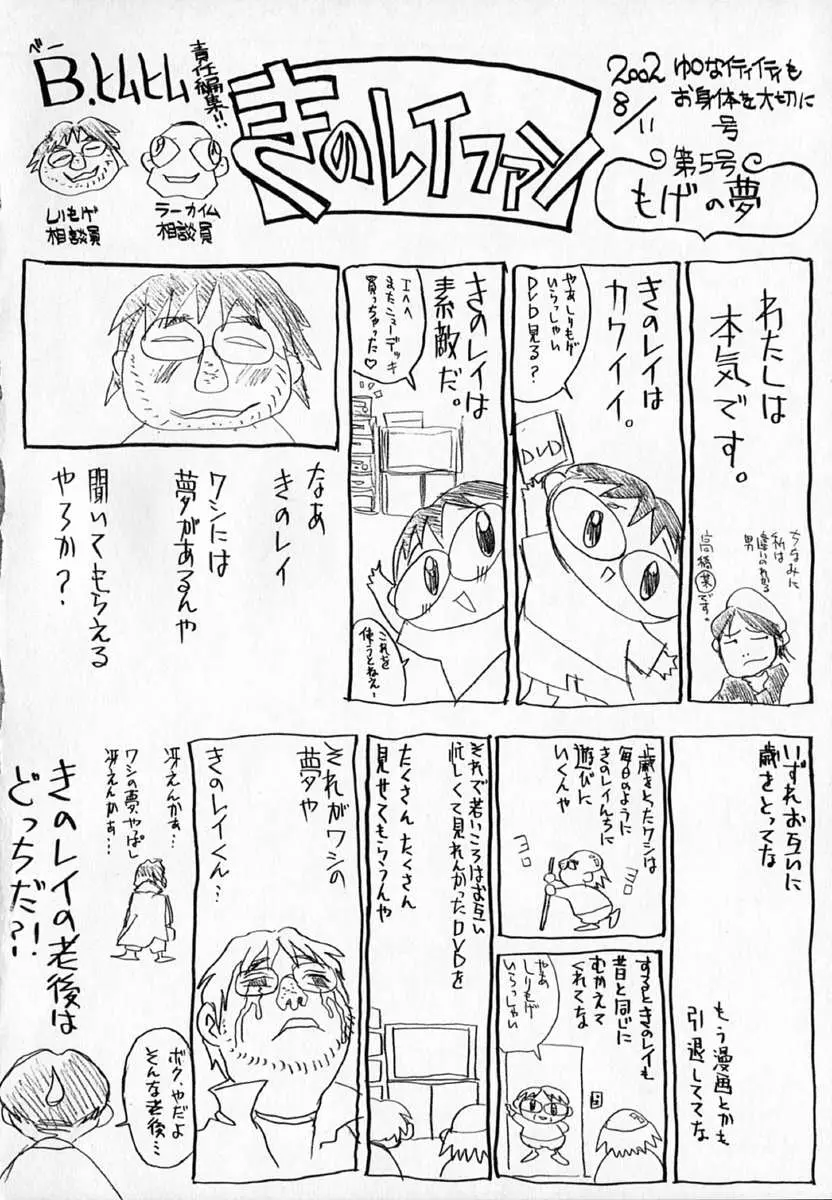 2002
8/11
ゆのなイティイティも
お身体を大切に
号
第5号
もげの夢
きのレイファン
責任編集!!
ベー
B.ヒムヒム
ラーカイム
相談員
しりもげ
相談員
わたしは
本気です。
ちなみに
私は
違いのわかる
男
高橋葉です。
きのレイは
カワイイ。
やあしりもげ
いらっしゃい
DVD見る?
DVD
きのレイは
素敵だ。
エヘヘ
またニューデッキ
買っちゃった♡
これを
使うとねえ-
なあ
きのレイ
ワシには
夢があるんや
聞いてもらえる
やろか?
いずれお互いに
歳をとってな
もう漫画とかも
引退しててな
歳をとったワシは
毎日のように
きのレイんちに
遊びに
いくんや
ヨロ
ヨロ
するときのレイも
昔と同じに
むかえて
くれてな
やあ
しりもげ
いらっしゃい
それで若いころはお互い
忙しくて見れんかったDVDを
たくさんたくさん
見せてもらうんや
それがワシの
夢や
きのレイくん…
冴えんかぁ…
ワシの夢やっぱし
冴えんかぁ…
きのレイの老後は
どっちだ?!
ボク、やだよ
そんな老後…